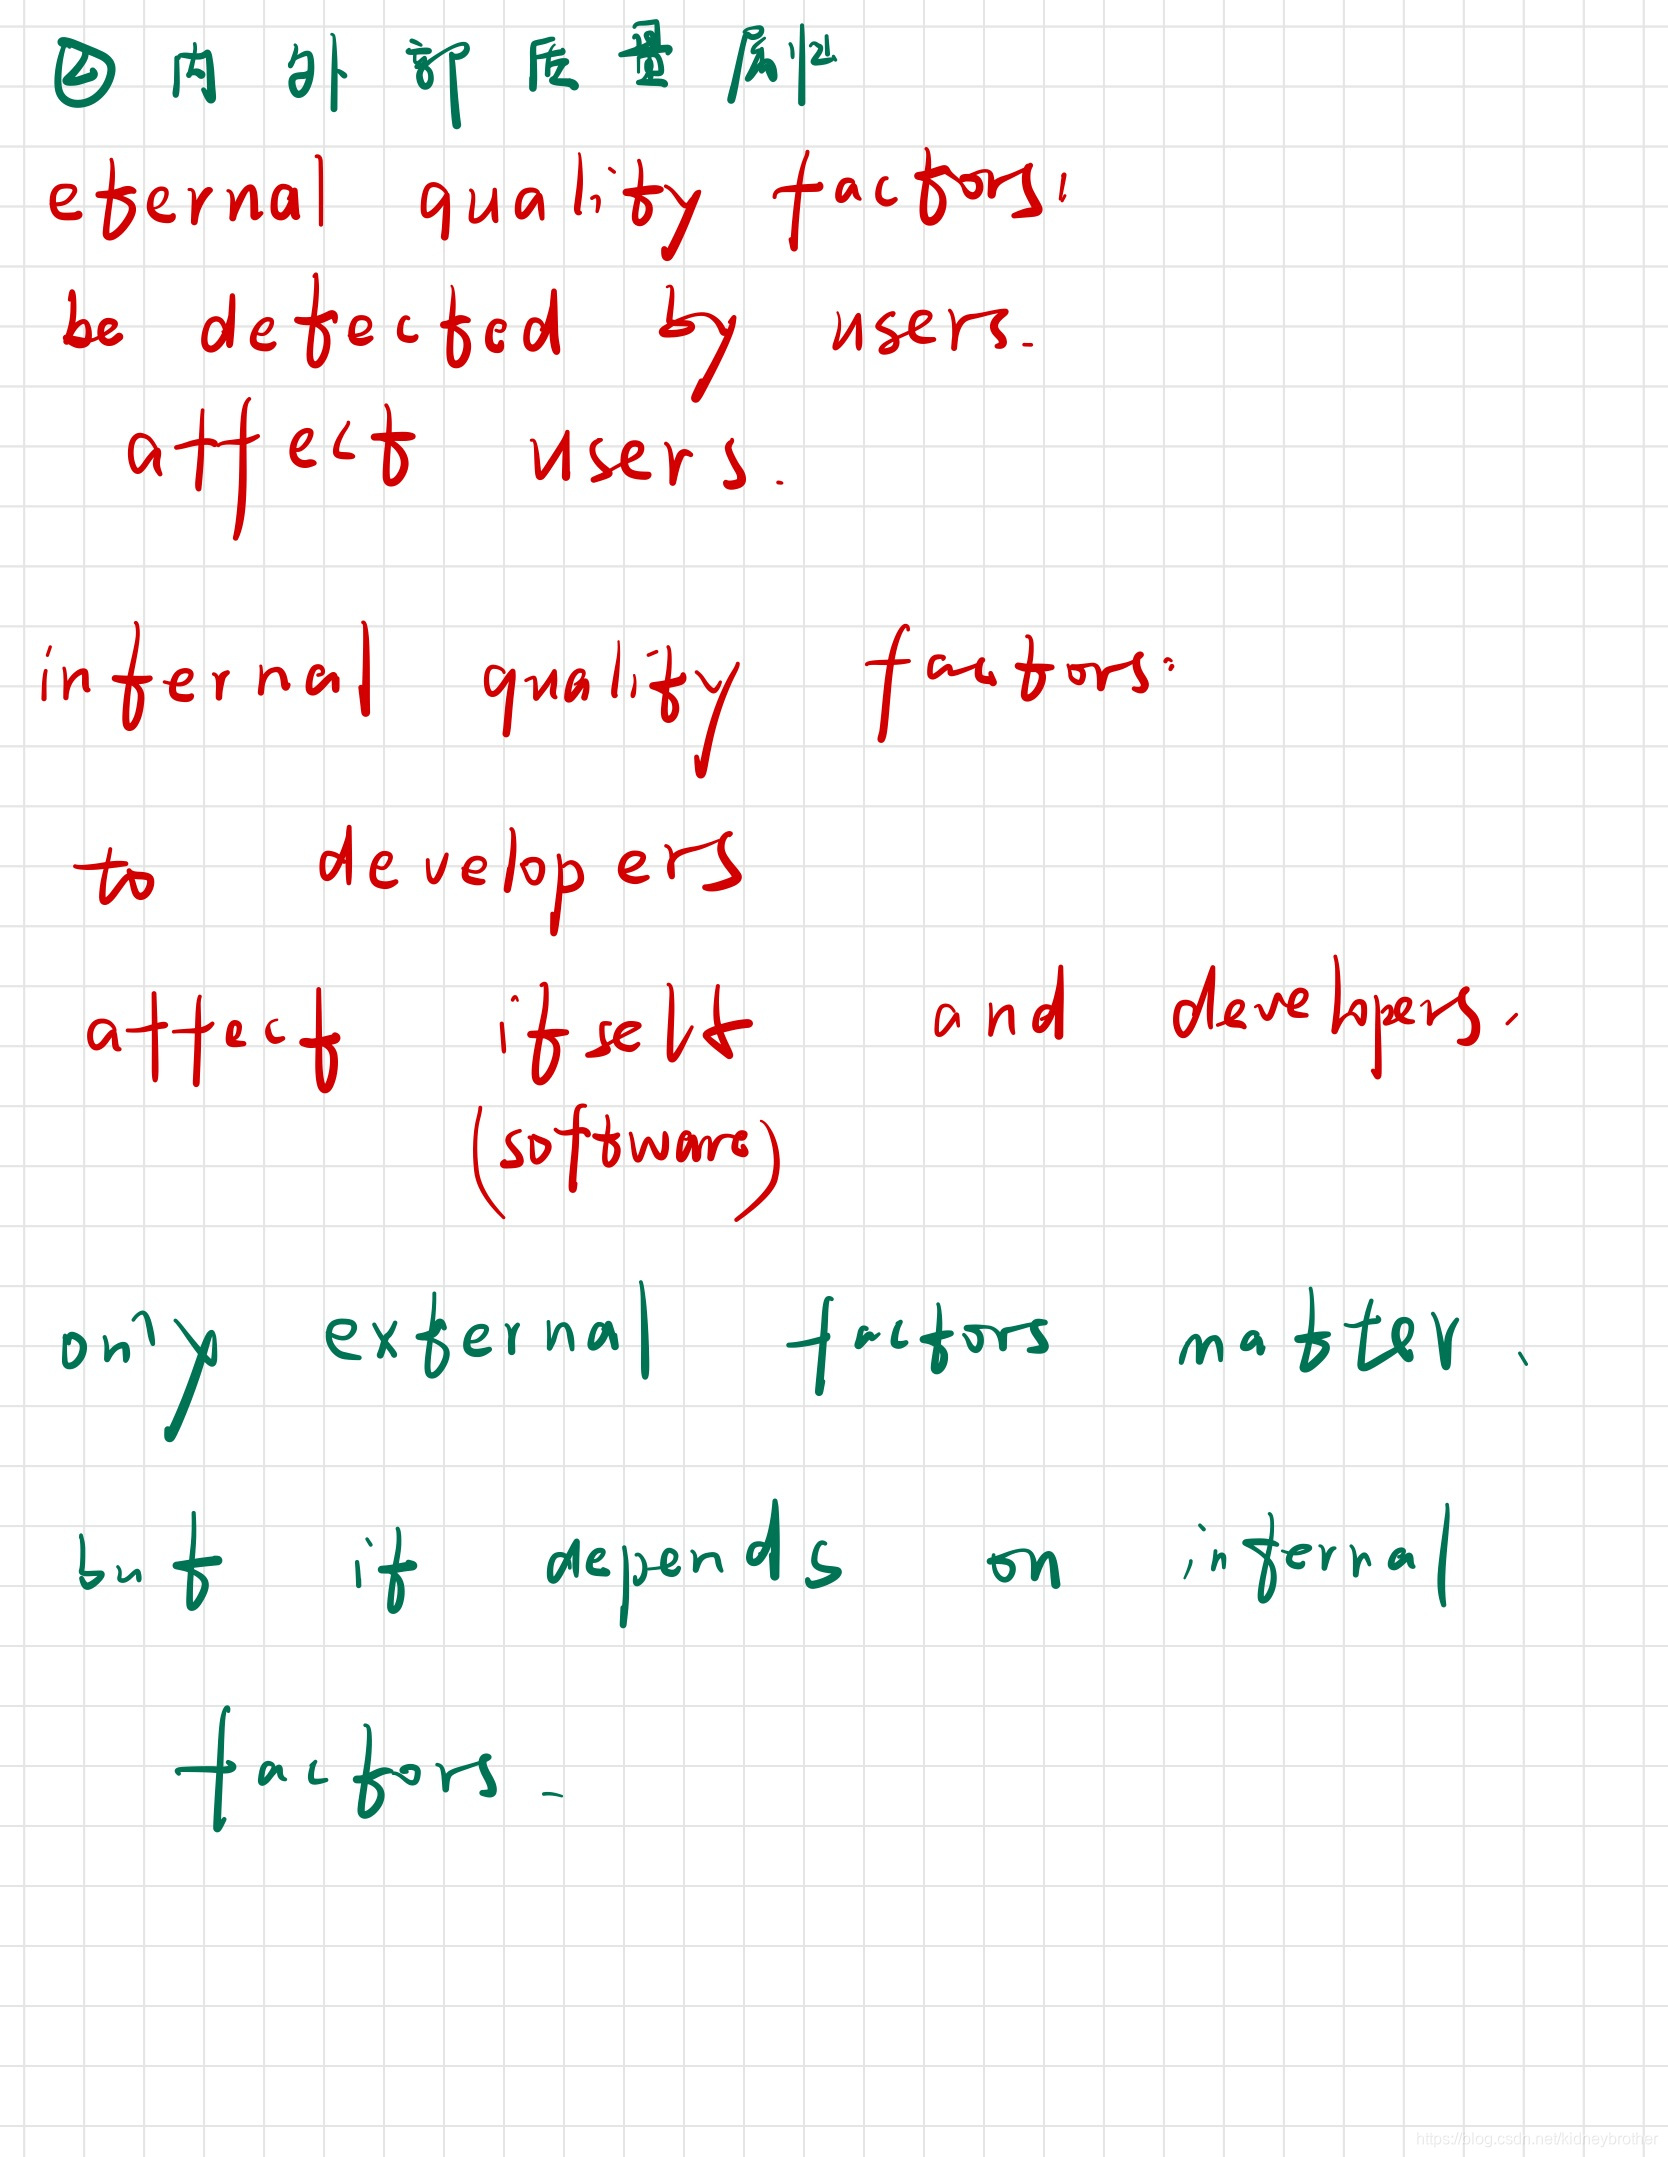 ② 内外部质量属性
eternal quality factors:
be detected by users.
affect users.
internal quality factors:
to developers
affect itself and developers.
(software)
only external factors matter.
but it depends on internal
factors.
https://blog.csdn.net/kidneybrother